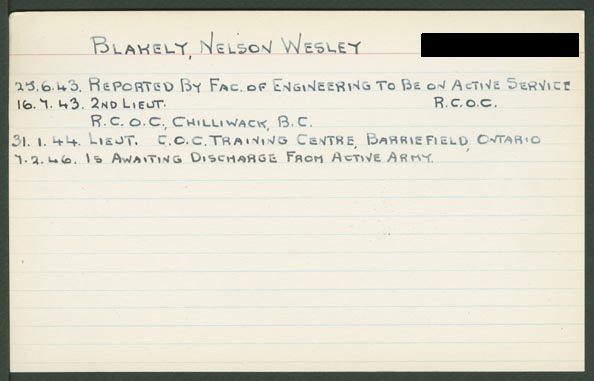 BLAKELY, NELSON WESLEY
25.6.43. REPORTED BY FAC. OF ENGINEERING TO BE ON ACTIVE SERVICE
16.7.43. 2ND LIEUT. R.C.O.C.
R.C.O.C., CHILLIWACK, B.C.
31.1.44. LIEUT. C.O.C. TRAINING CENTRE, BARRIEFIELD, ONTARIO
7.2.46. IS AWAITING DISCHARGE FROM ACTIVE ARMY.